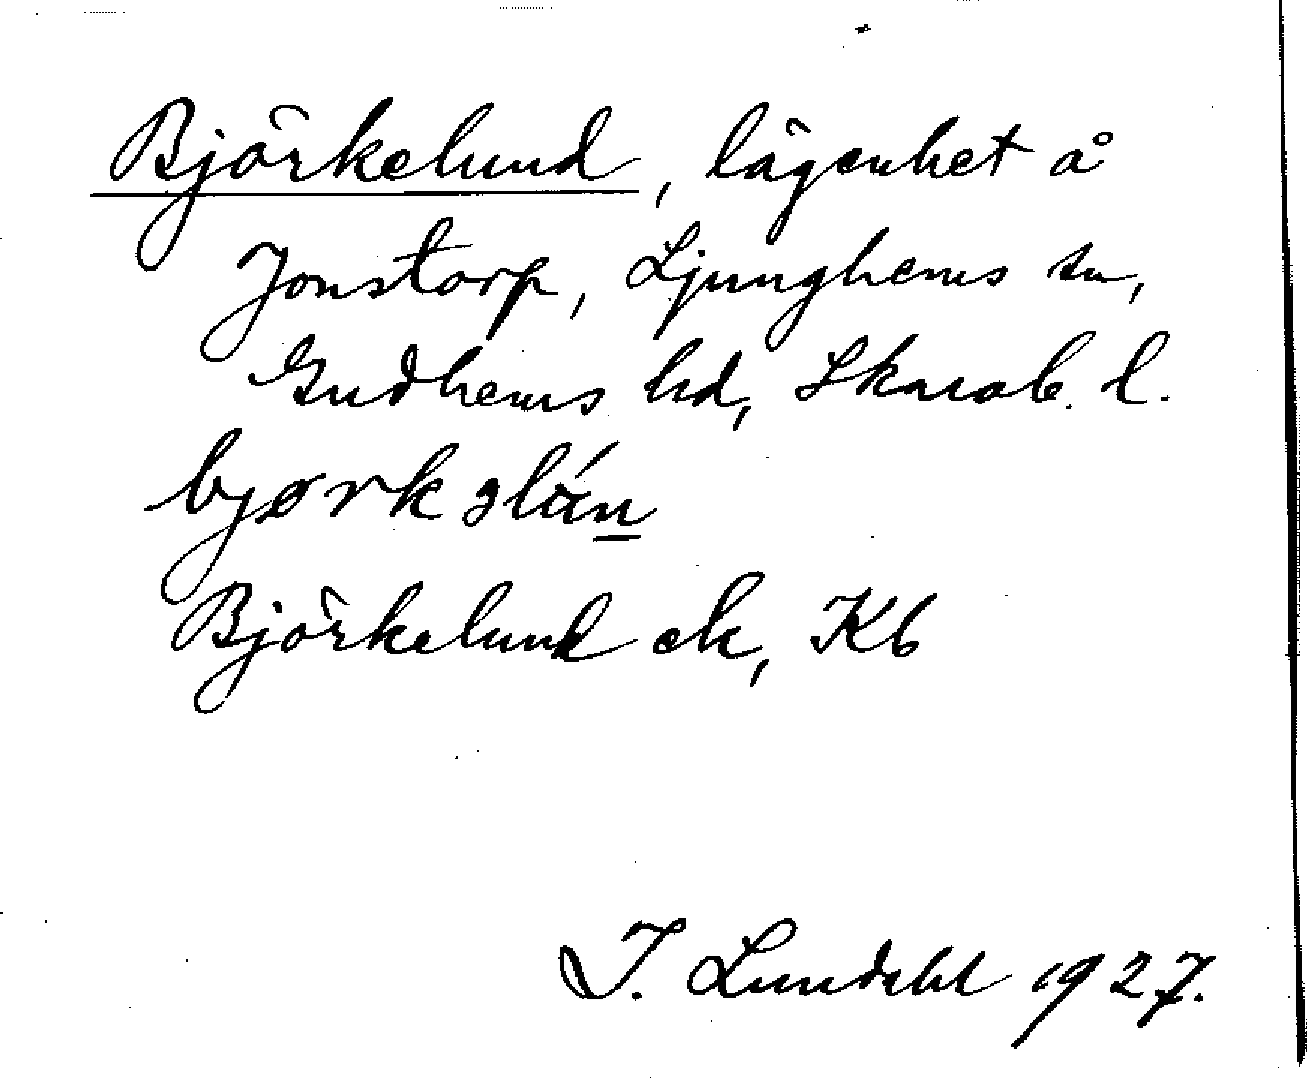 Björkelund, lägenhet å
Jonstorp, Ljunghems sn,
Gudhems hd, Skarab. l.
Björkelund ek, Kb
I. Lundahl 1927.